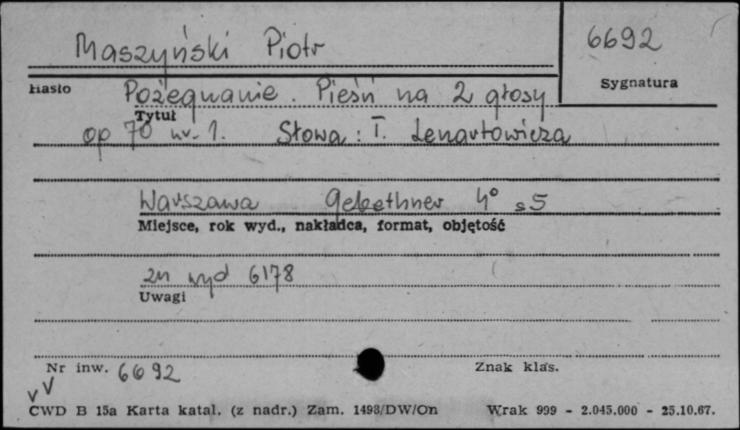 Maszyński Piotr
6692
Hasło
Sygnatura
Pożegnanie. Pieśń na 2 głosy
Tytuł
op 70 nr. 1. Słowa: T. Lenartowicza
Warszawa Gebethner 4° s 5
Miejsce, rok wyd., nakładca, format, objętość
zn wyd 6178
Uwagi
Nr inw. 6692
Znak klas.
CWD B 15a Karta katal. (z nadr.) Zam. 1493/DW/On Wrak 999 - 2.045.000 - 25.10.67.